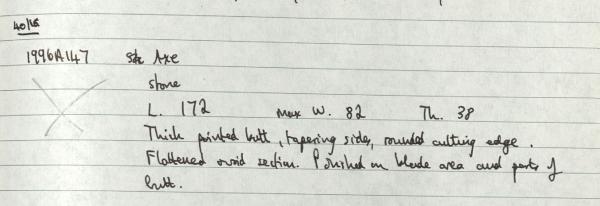 40/16
1996A147 Axe
stone
L. 172 Max W. 82 Th. 38
Thick pointed butt, tapering sides, rounded cutting edge.
Flattened ovoid section. Polished on blade area and parts of
butt.